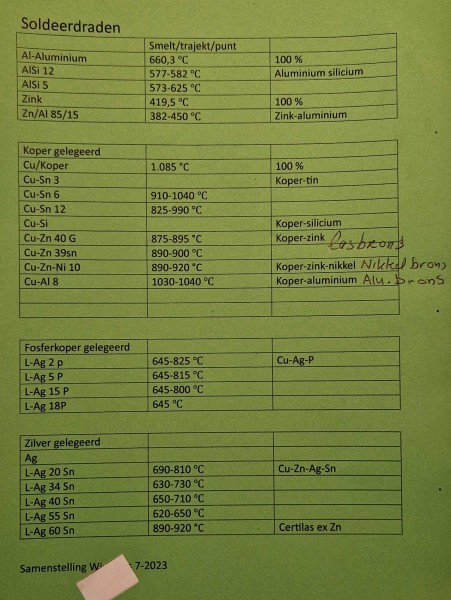 Soldeerdraden
Smelt/trajekt/punt
Al-Aluminium 660,3 °C 100 %
AlSi 12 577-582 °C Aluminium silicium
AlSi 5 573-625 °C
Zink 419,5 °C 100 %
Zn/Al 85/15 382-450 °C Zink-aluminium
Koper gelegeerd
Cu/Koper 1.085 °C 100 %
Cu-Sn 3 Koper-tin
Cu-Sn 6 910-1040 °C
Cu-Sn 12 825-990 °C
Cu-Si Koper-silicium
Cu-Zn 40 G 875-895 °C Koper-zink Lasbrons
Cu-Zn 39sn 890-900 °C
Cu-Zn-Ni 10 890-920 °C Koper-zink-nikkel Nikkel brons
Cu-Al 8 1030-1040 °C Koper-aluminium Alu. brons
Fosferkoper gelegeerd
L-Ag 2 p 645-825 °C Cu-Ag-P
L-Ag 5 P 645-815 °C
L-Ag 15 P 645-800 °C
L-Ag 18P 645 °C
Zilver gelegeerd
Ag
L-Ag 20 Sn 690-810 °C Cu-Zn-Ag-Sn
L-Ag 34 Sn 630-730 °C
L-Ag 40 Sn 650-710 °C
L-Ag 55 Sn 620-650 °C
L-Ag 60 Sn 890-920 °C Certilas ex Zn
Samenstelling 7-2023